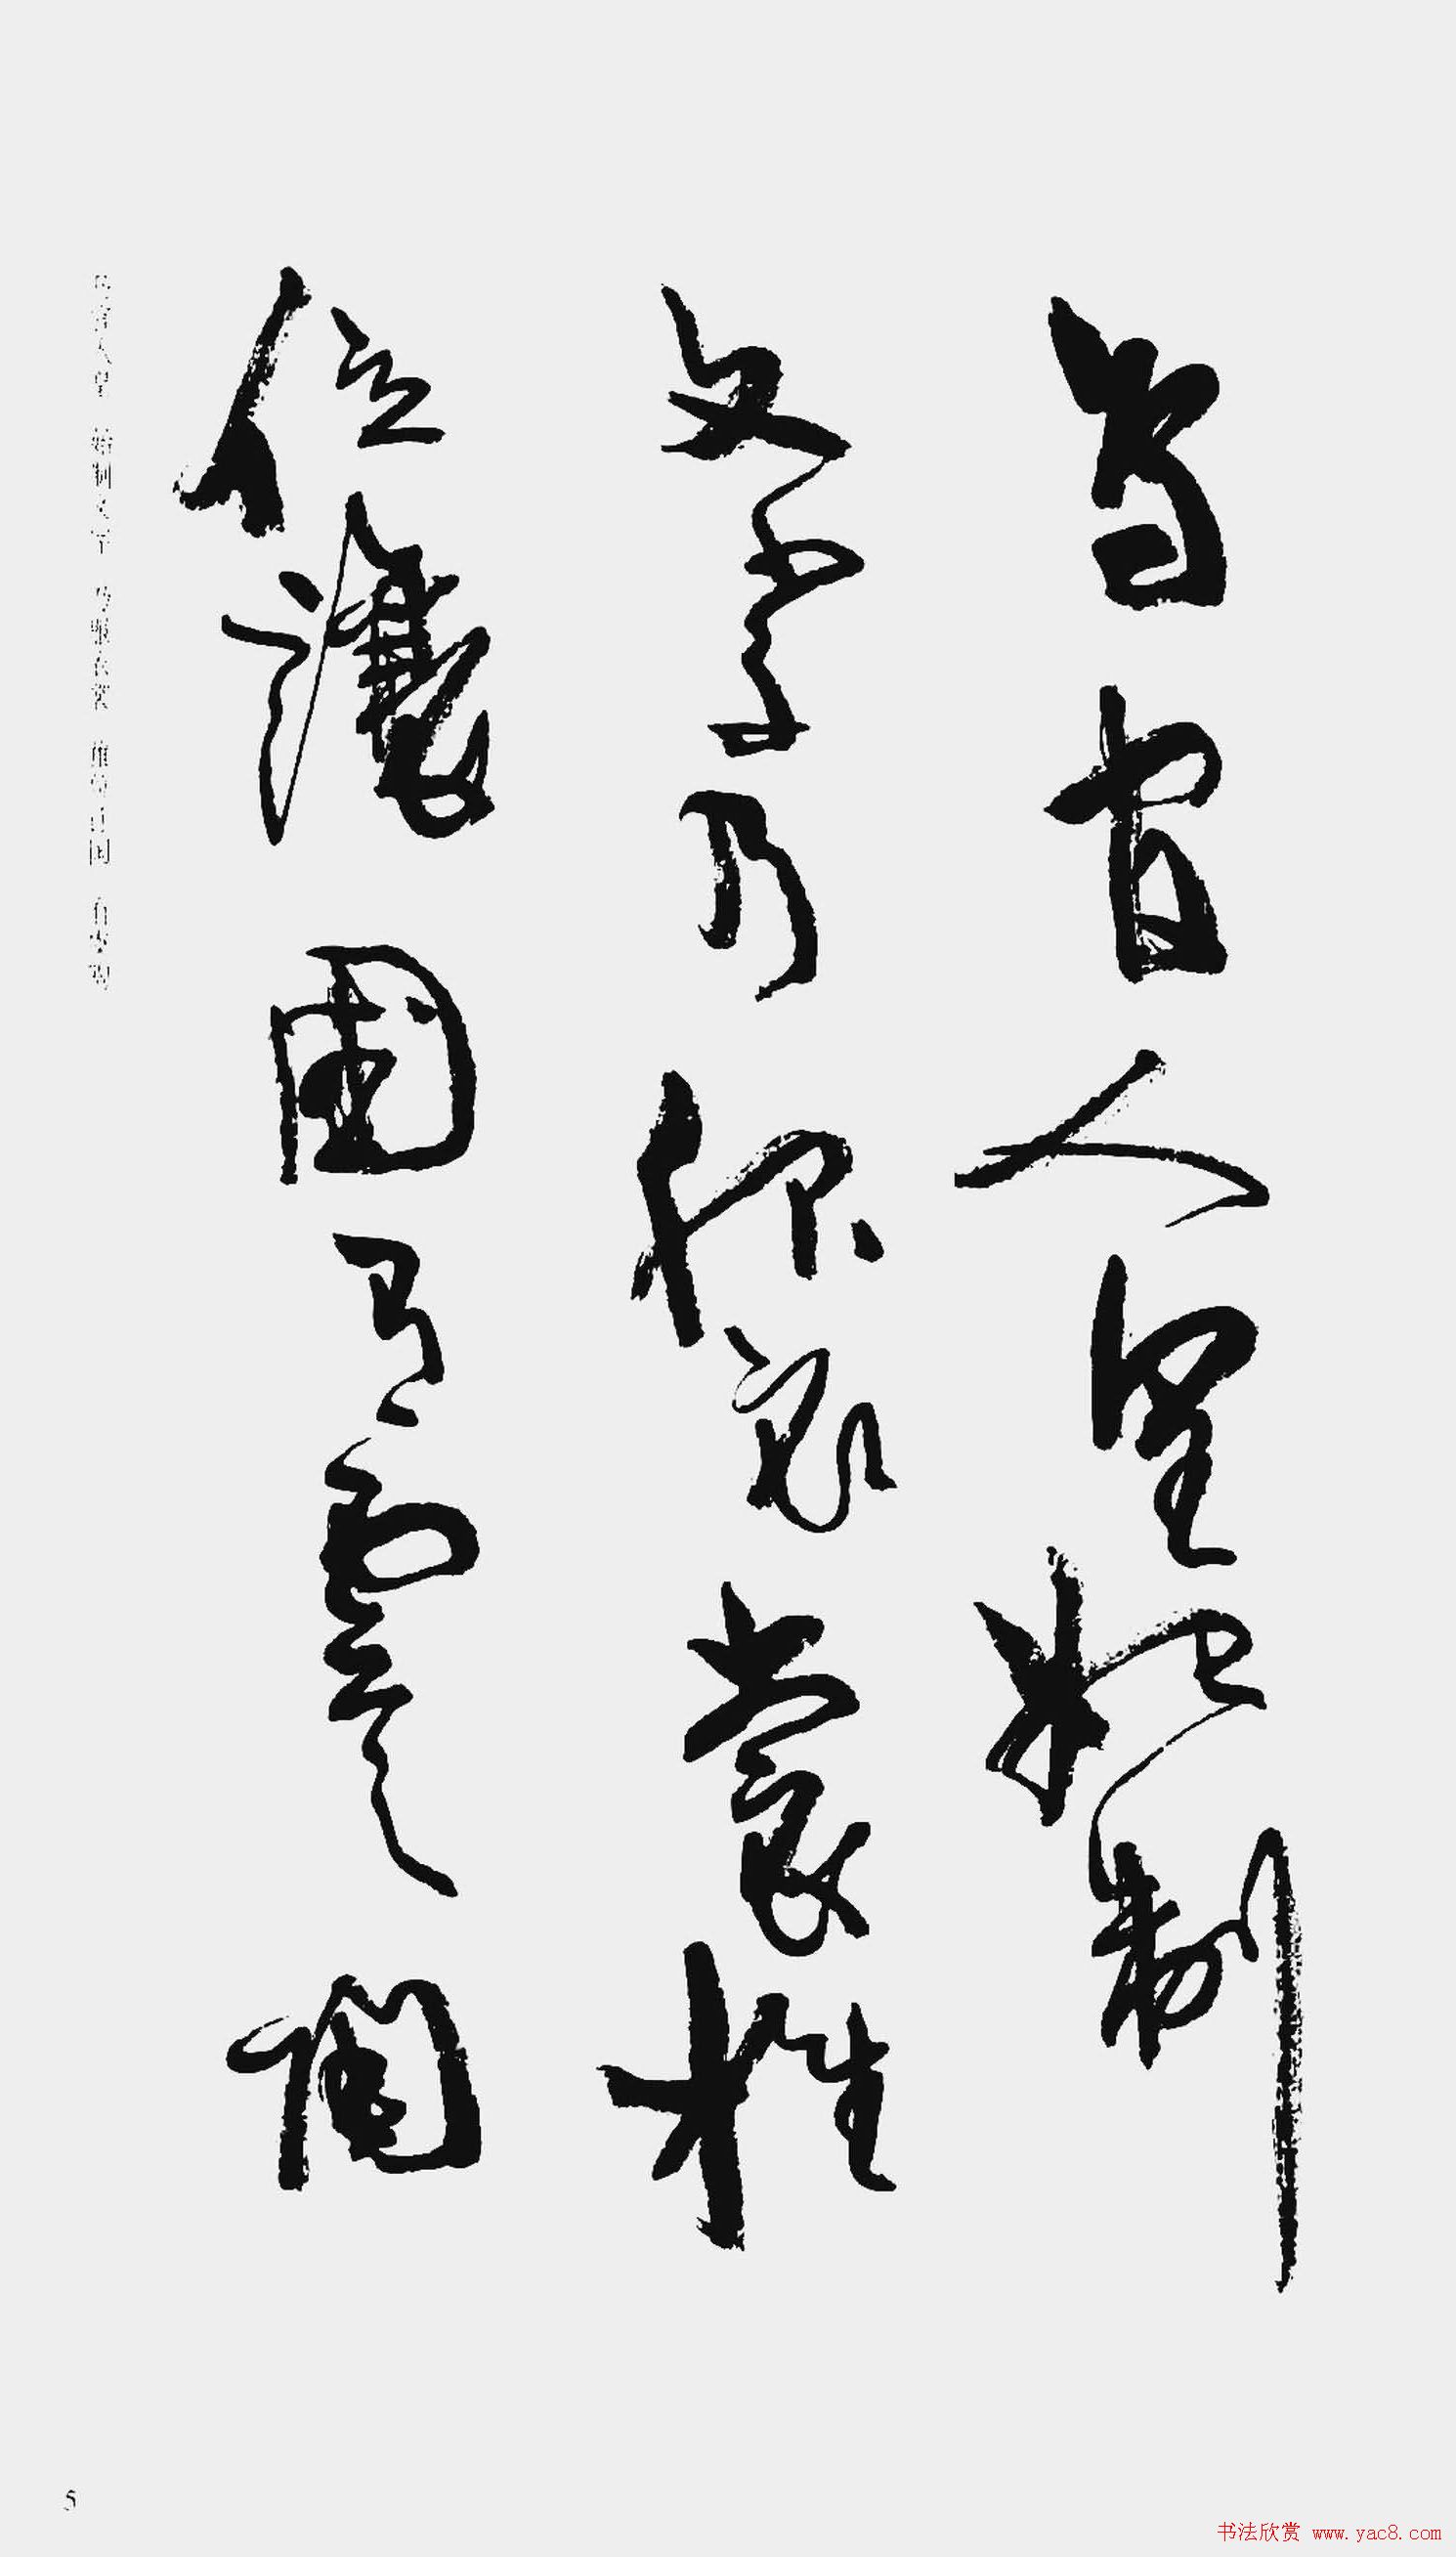 鳥官人皇始制
文字乃服衣裳推
位讓國有虞陶
鸟官人皇 始制文字 乃服衣裳 推位让国 有虞陶
5
书法欣赏 www.yac8.com